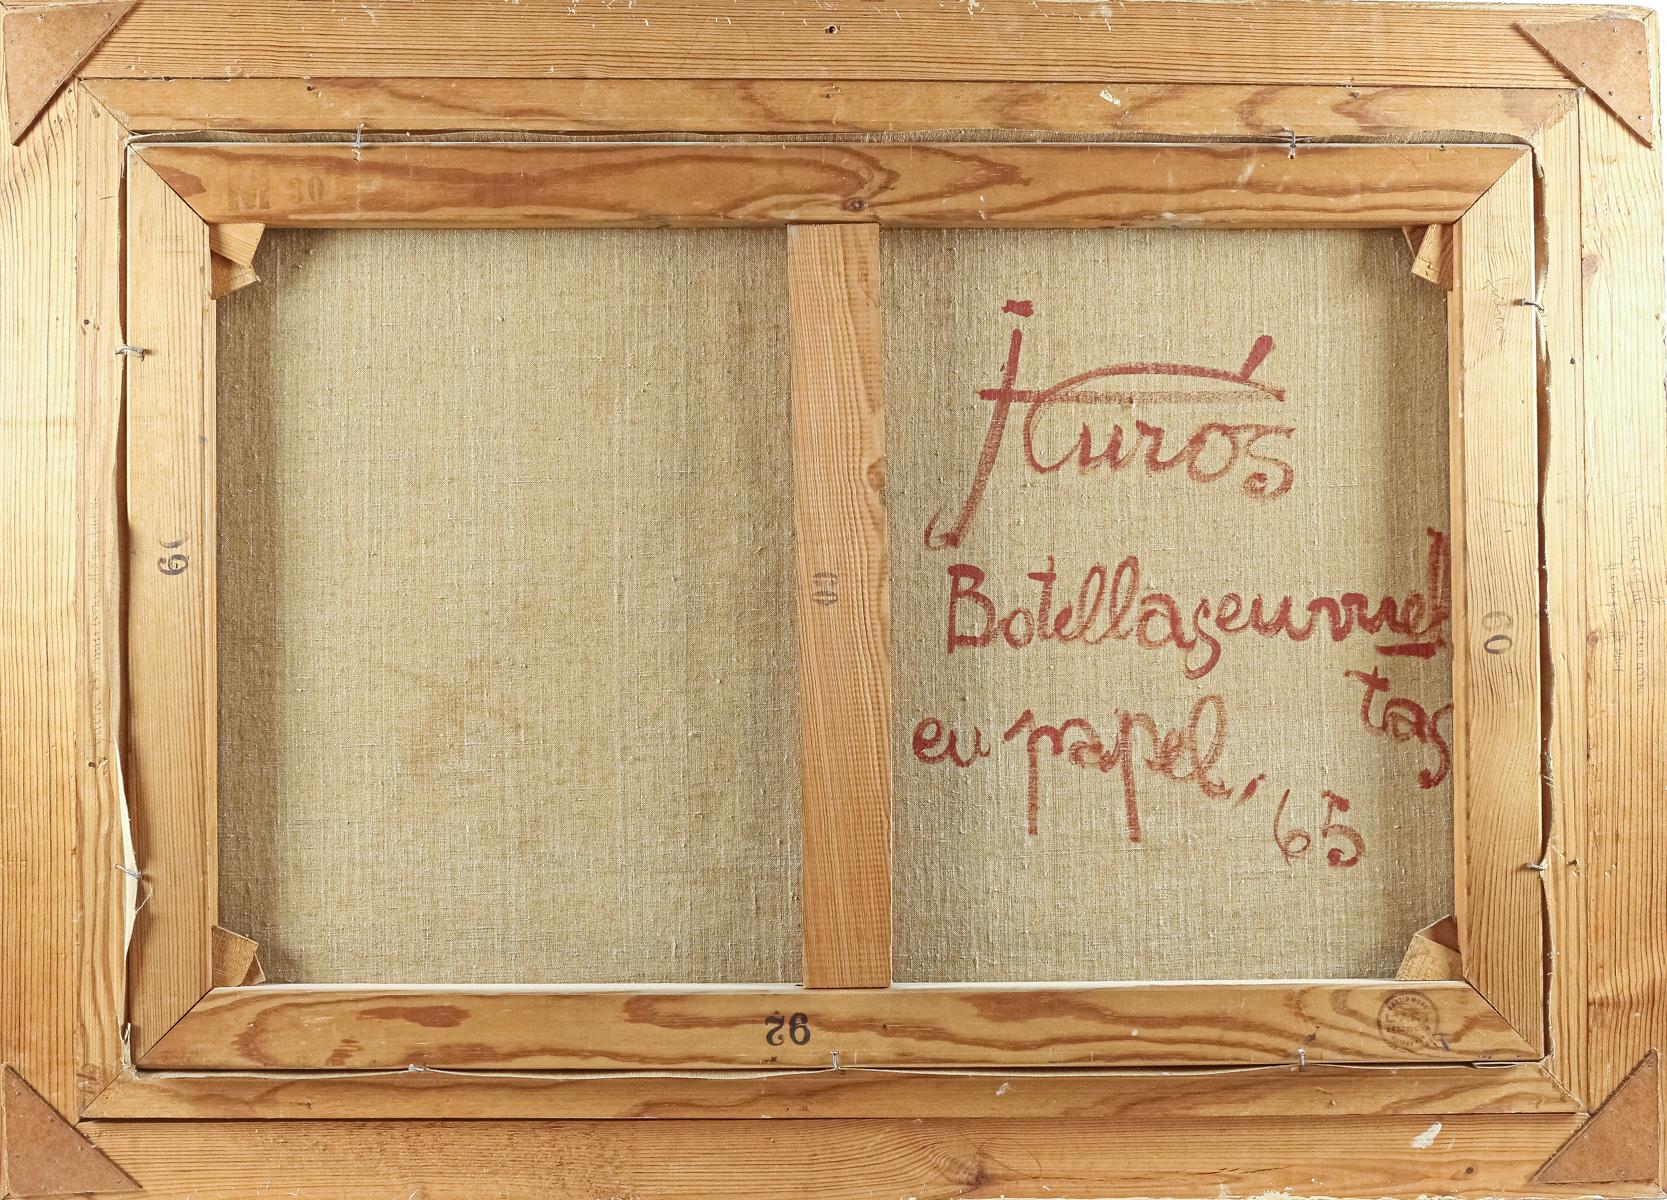 J Curós
Botellas envuel
tas
en papel, 65
30
60
60
60
92